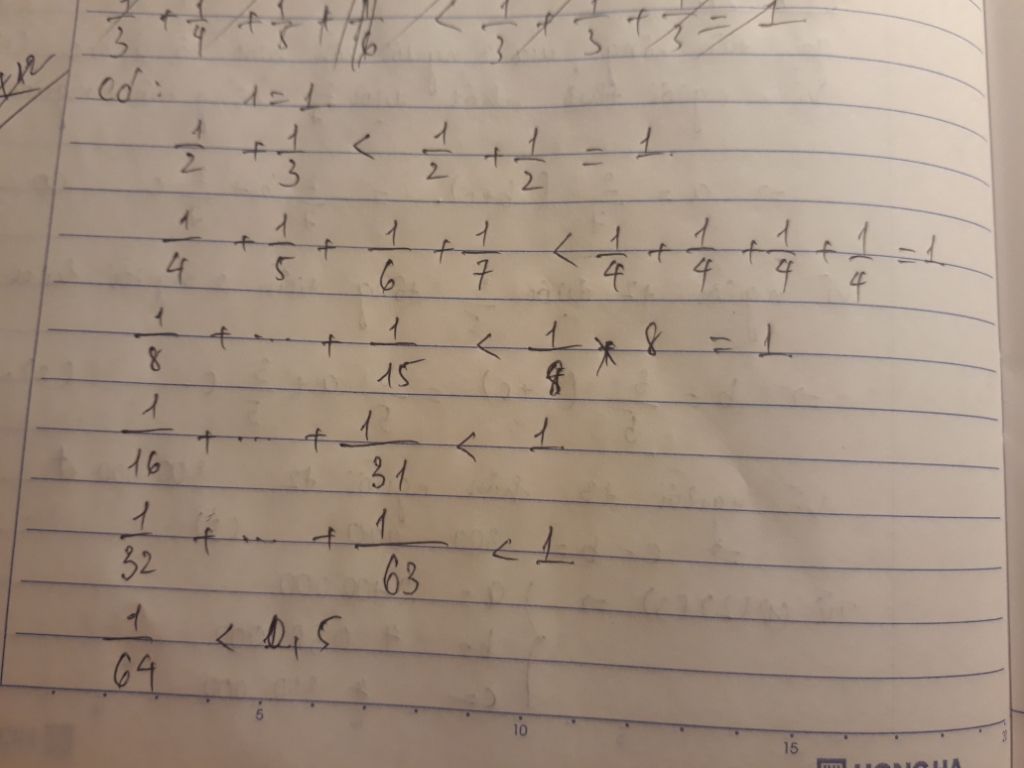 1/3 + 1/4 + 1/5 + 1/6 < 1/3 + 1/3 + 1/3 = 1
có : 1 = 1
1/2 + 1/3 < 1/2 + 1/2 = 1.
1/4 + 1/5 + 1/6 + 1/7 < 1/4 + 1/4 + 1/4 + 1/4 = 1
1/8 + ... + 1/15 < 1/8 * 8 = 1
1/16 + ... + 1/31 < 1
1/32 + ... + 1/63 < 1
1/64 < 0,5
5 10 15
HONG HA